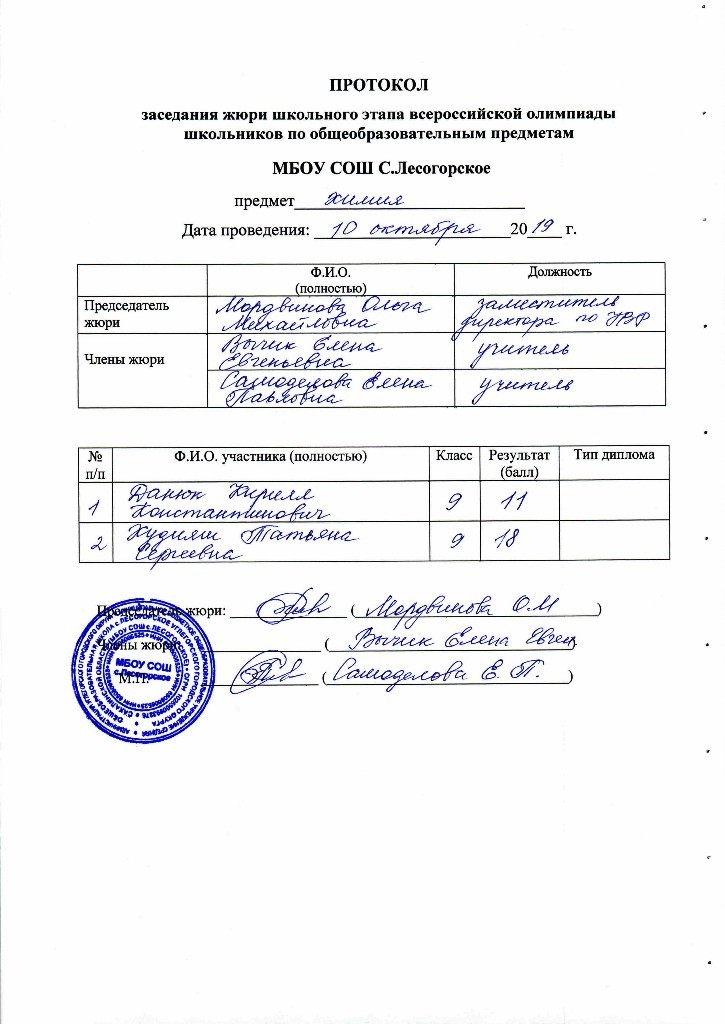 ПРОТОКОЛ
заседания жюри школьного этапа всероссийской олимпиады
школьников по общеобразовательным предметам
МБОУ СОШ С.Лесогорское
предмет химия
Дата проведения: 10 октября 2019 г.
Ф.И.О. Должность
(полностью)
Председатель жюри Мордвинова Ольга заместитель
Михайловна директора по УВР
Члены жюри Вычик Елена учитель
Евгеньевна
Самоделова Елена учитель
Павловна
№ п/п Ф.И.О. участника (полностью) Класс Результат (балл) Тип диплома
1 Данюк Кирилл 9 11
Константинович
2 Худияш Татьяна 9 18
Сергеевна
Председатель жюри: (Мордвинова О.М)
Члены жюри: (Вычик Елена Евген)
М.П. (Самоделова Е. П.)
МБОУ СОШ
с.Лесогорское